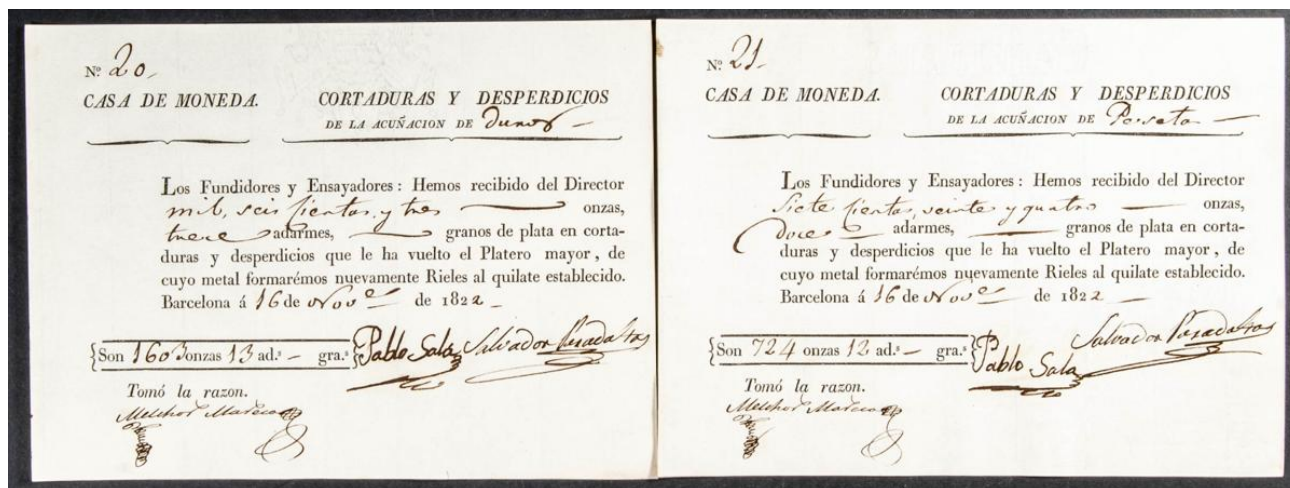 Nº 20
CASA DE MONEDA. CORTADURAS Y DESPERDICIOS
DE LA ACUÑACION DE Duros
Los Fundidores y Ensayadores: Hemos recibido del Director
mil, seis cientas, y tres onzas,
trece adarmes, granos de plata en corta-
duras y desperdicios que le ha vuelto el Platero mayor, de
cuyo metal formarémos nuevamente Rieles al quilate establecido.
Barcelona á 16 de Nov.e de 1822
Son 1603 onzas 13 ad.s — gra.s Pablo Sala Salvador
Tomó la razon.
Melchor
Nº 21
CASA DE MONEDA. CORTADURAS Y DESPERDICIOS
DE LA ACUÑACION DE Peseta
Los Fundidores y Ensayadores: Hemos recibido del Director
Siete cientas, veinte y quatro onzas,
Doce adarmes, granos de plata en corta-
duras y desperdicios que le ha vuelto el Platero mayor, de
cuyo metal formarémos nuevamente Rieles al quilate establecido.
Barcelona á 16 de Nov.e de 1822
Son 724 onzas 12 ad.s — gra.s Pablo Sala Salvador
Tomó la razon.
Melchor